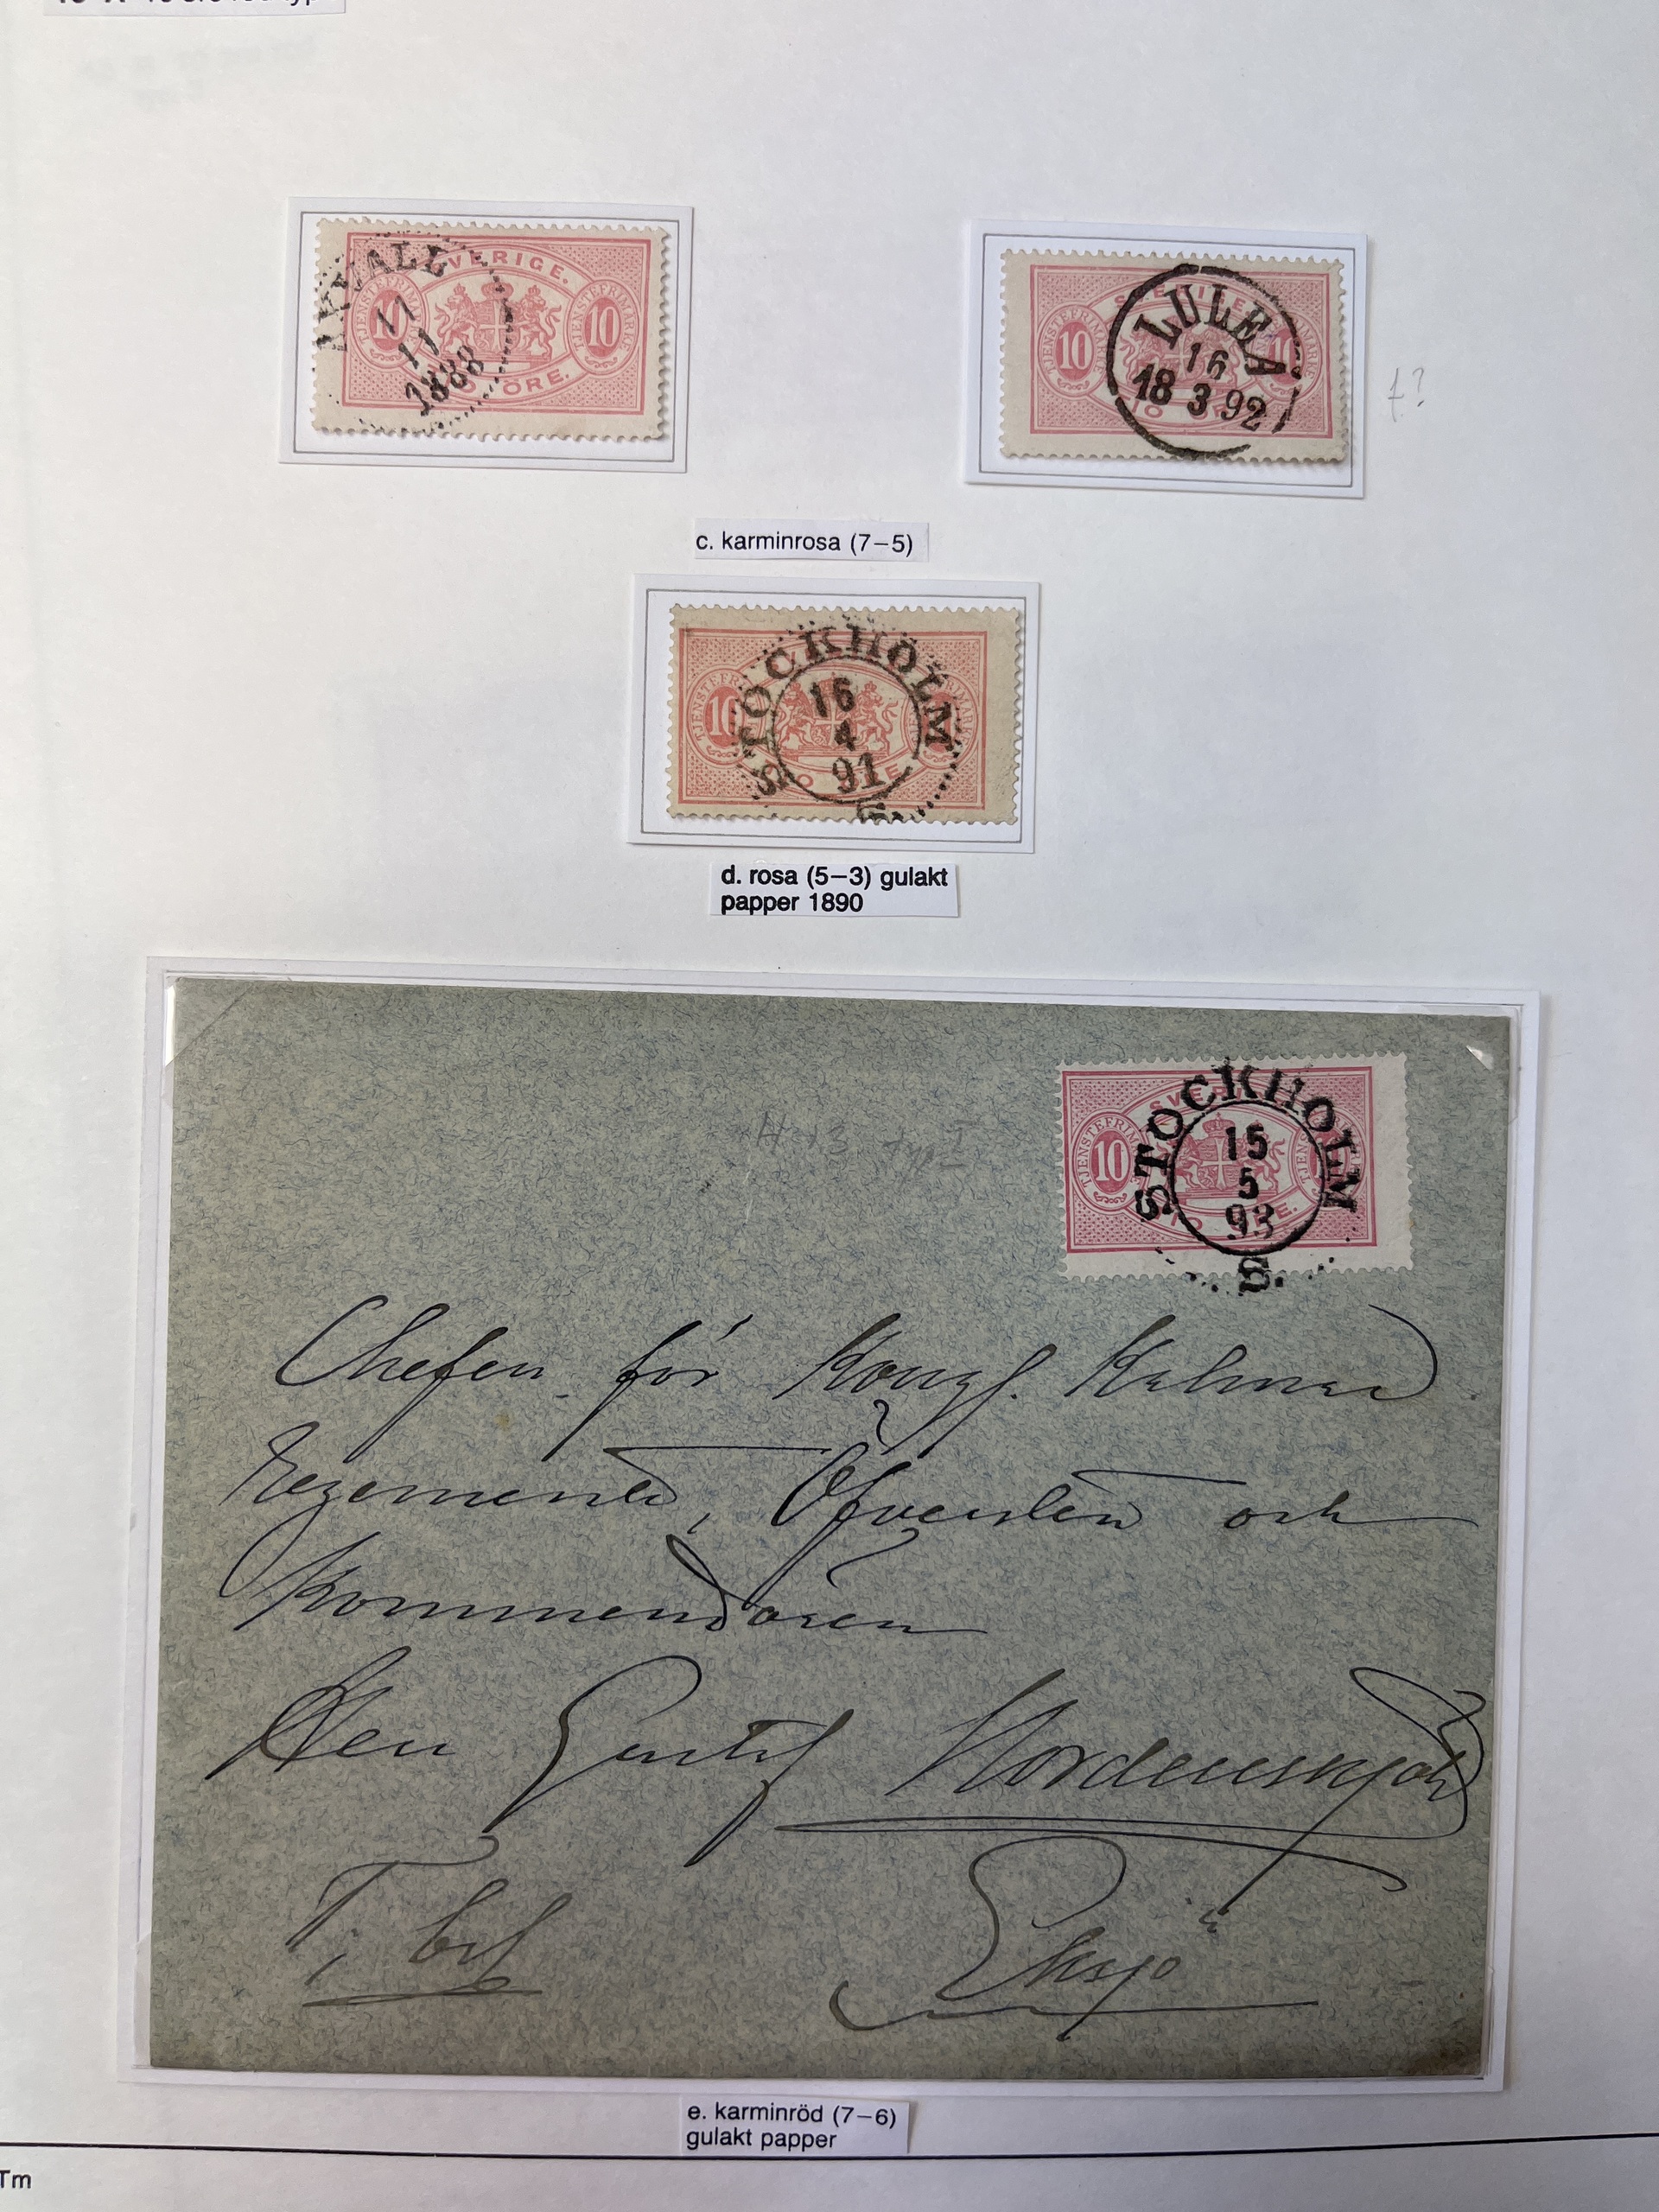 AKVALL
11
11
1888
SVERIGE.
TJENSTEFRIMÄRKE
10
10
TIO ÖRE.
LULEA
16
18 3 92
10
TJENSTEFRIM
f?
c. karminrosa (7–5)
STOCKHOLM
16
4
91
10
TJENSTEFRI
d. rosa (5–3) gulakt
papper 1890
STOCKHOLM
15
5
93
S.
TJENSTEFRIM
10
TIO ÖRE.
typ I
Chefen för Kongl. Kalmar
Regemente, Öfversten och
Kommendören
Herr Gustaf Nordenskjöld
T, bref
Eksjö
e. karminröd (7–6)
gulakt papper
Tm